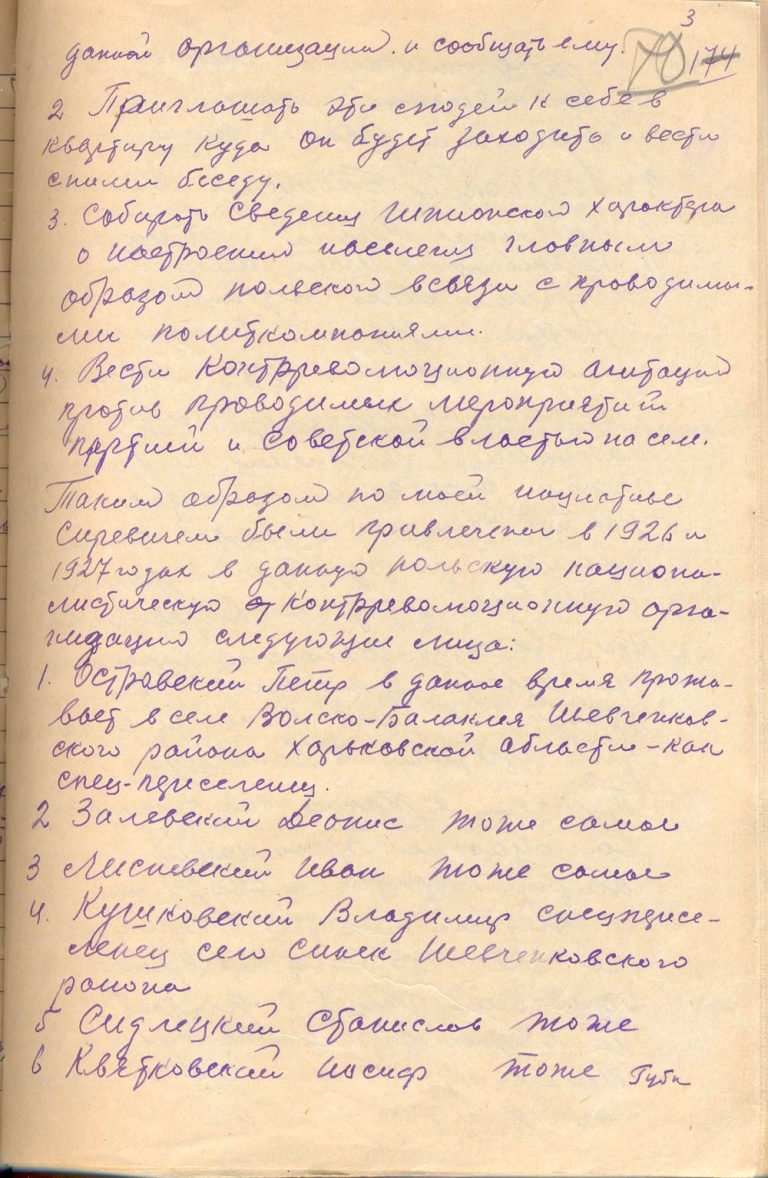 3
70 174
данной организации. и сообщать ему.
2 Приглашать эти людей к себе в
квартиру куда он будет заходить и вести
сними беседу.
3. Собирать сведения шпионского характера
о настроении населения главным
образом польского всвязи с проводимы-
ми политкомпаниями.
4. Вести контрреволюционную агитацию
против проводимых мероприятий
партией и советской властью на селе.
Таким образом по моей
были привлечены в 1926 и
1927 годах в данную польскую национа-
листическую контрреволюционную орга-
низацию следующие лица:
1. Островский Петр в данное время прожи-
вает в селе Волско-Балаклея Шевченков-
ского района Харьковской области - как
спец-переселенец.
2 Залевский Деонис тоже самое
3 Лисневский Иван тоже самое
4. Кушковский Владимир спецпересе-
ленец село Шевченковского
района
5 Сидлецкий Станислов тоже
6 Квятковский Иосиф тоже